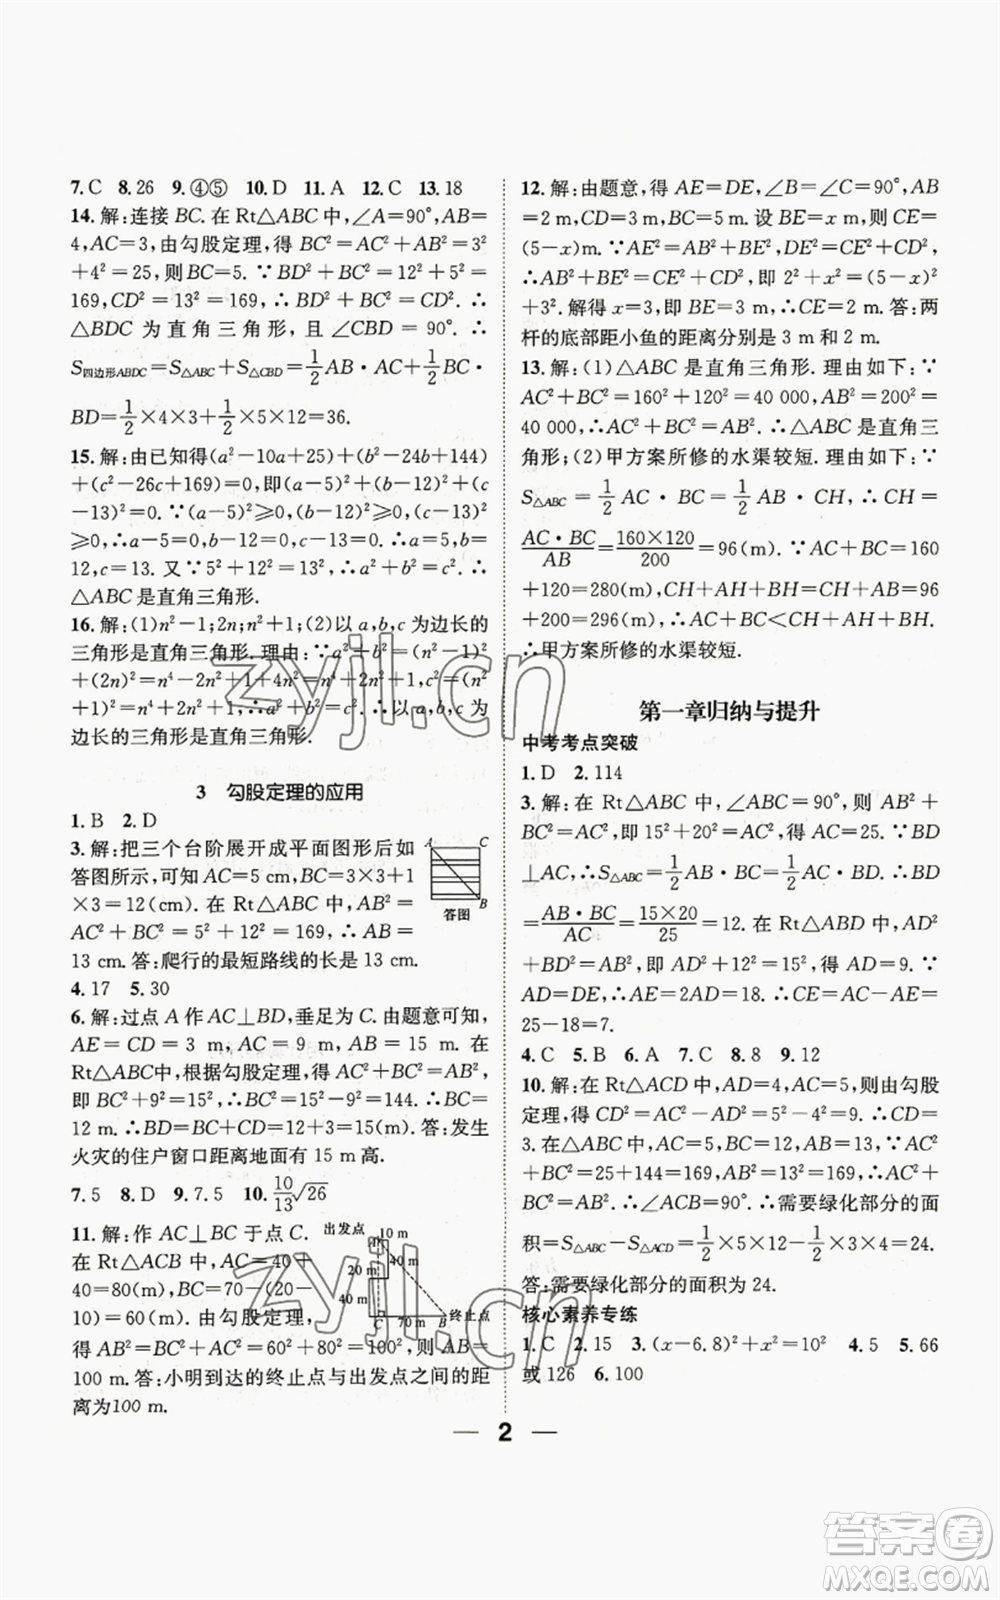 7. C  8. 26  9. ④⑤  10. D  11. A  12. C  13. 18
14. 解:连接 BC. 在 Rt△ABC 中,∠A=90°,AB=
4,AC=3,由勾股定理,得 BC²=AC²+AB²=3²
+4²=25,则BC=5. ∵BD²+BC²=12²+5²=
169,CD²=13²=169,∴BD²+BC²=CD². ∴
△BDC 为直角三角形,且∠CBD=90°. ∴
S四边形ABDC=S△ABC+S△CBD=1/2 AB·AC+1/2 BC·
BD=1/2×4×3+1/2×5×12=36.
15. 解:由已知得(a²-10a+25)+(b²-24b+144)
+(c²-26c+169)=0,即(a-5)²+(b-12)²+(c
-13)²=0. ∵(a-5)²≥0,(b-12)²≥0,(c-13)²
≥0,∴a-5=0,b-12=0,c-13=0. ∴a=5,b=
12,c=13. 又∵5²+12²=13²,∴a²+b²=c². ∴
△ABC是直角三角形.
16. 解:(1)n²-1;2n;n²+1;(2)以 a,b,c为边长的
三角形是直角三角形. 理由:∵a²+b²=(n²-1)²
+(2n)²=n⁴-2n²+1+4n²=n⁴+2n²+1,c²=(n²
+1)²=n⁴+2n²+1,∴a²+b²=c². ∴以 a,b,c 为
边长的三角形是直角三角形.
3 勾股定理的应用
1. B  2. D
3. 解:把三个台阶展开成平面图形后如
答图所示,可知 AC=5 cm,BC=3×3+1
×3=12(cm). 在 Rt△ABC 中,AB²=
AC²+BC²=5²+12²=169,∴AB=
13 cm. 答:爬行的最短路线的长是 13 cm.
A
C
B
答图
4. 17  5. 30
6. 解:过点 A 作 AC⊥BD,垂足为 C. 由题意可知,
AE=CD=3 m,AC=9 m,AB=15 m. 在
Rt△ABC中,根据勾股定理,得 BC²+AC²=AB²,
即 BC²+9²=15²,∴BC²=15²-9²=144. ∴BC=
12 m. ∴BD=BC+CD=12+3=15(m). 答:发生
火灾的住户窗口距离地面有 15 m高.
7. 5  8. D  9. 7.5  10. 10/13 √26
11. 解:作 AC⊥BC 于点 C.
在 Rt△ACB 中,AC=40+
40=80(m),BC=70-(20-
10)=60(m). 由勾股定理,
得 AB²=AC²+BC²=60²+80²=100²,则AB=
100 m. 答:小明到达的终止点与出发点之间的距
离为100 m.
出发点
10 m
20 m
40 m
40 m
C
70 m
B
终止点
12. 解:由题意,得 AE=DE,∠B=∠C=90°,AB
=2 m,CD=3 m,BC=5 m. 设 BE=x m,则CE=
(5-x)m. ∵AE²=AB²+BE²,DE²=CE²+CD²,
∴AB²+BE²=CE²+CD²,即 2²+x²=(5-x)²
+3². 解得 x=3,即 BE=3 m,∴CE=2 m. 答:两
杆的底部距小鱼的距离分别是 3 m 和 2 m.
13. 解:(1)△ABC 是直角三角形. 理由如下:∵
AC²+BC²=160²+120²=40 000,AB²=200²=
40 000,∴AC²+BC²=AB². ∴△ABC是直角三
角形;(2)甲方案所修的水渠较短. 理由如下:∵
S△ABC=1/2 AC·BC=1/2 AB·CH,∴CH=
AC·BC/AB=160×120/200=96(m). ∵AC+BC=160
+120=280(m),CH+AH+BH=CH+AB=96
+200=296(m),∴AC+BC<CH+AH+BH.
∴甲方案所修的水渠较短.
第一章归纳与提升
中考考点突破
1. D  2. 114
3. 解:在 Rt△ABC 中,∠ABC=90°,则 AB²+
BC²=AC²,即15²+20²=AC²,得 AC=25. ∵BD
⊥AC,∴S△ABC=1/2 AB·BC=1/2 AC·BD. ∴BD
=AB·BC/AC=15×20/25=12. 在 Rt△ABD 中,AD²
+BD²=AB²,即 AD²+12²=15²,得 AD=9. ∵
AD=DE,∴AE=2AD=18. ∴CE=AC-AE=
25-18=7.
4. C  5. B  6. A  7. C  8. 8  9. 12
10. 解:在 Rt△ACD 中,AD=4,AC=5,则由勾股
定理,得 CD²=AC²-AD²=5²-4²=9. ∴CD=
3. 在△ABC 中,AC=5,BC=12,AB=13,∵AC²+
BC²=25+144=169,AB²=13²=169,∴AC²+
BC²=AB². ∴∠ACB=90°. ∴需要绿化部分的面
积=S△ABC-S△ACD=1/2×5×12-1/2×3×4=24.
答:需要绿化部分的面积为 24.
核心素养专练
1. C  2. 15  3. (x-6.8)²+x²=10²  4. 5  5. 66
或 126  6. 100
2
zyjl.cn
zyjl.cn
答案卷
MXQE.COM